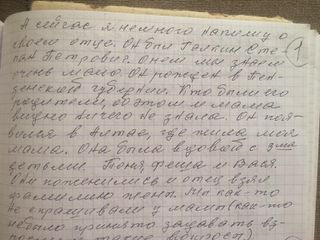 А сейчас я немного напишу о
своем отце. Он был Галкин Сте-
пан Петрович. О нем мы знаем
очень мало. Он рожден в Пен-
зенской губернии. Кто были его
родители, об этом и мама
видно ничего не знала. Он поя-
вился в Алтае, где жила моя
мама. Она была вдовой с 3мя
детьми. Тоня, Феша и Вася.
Они поженились и отец взял
фамилию жены. Мы как-то
не спрашивали у мамы (как-то
не было принято задавать во-
такие вопросы)
1